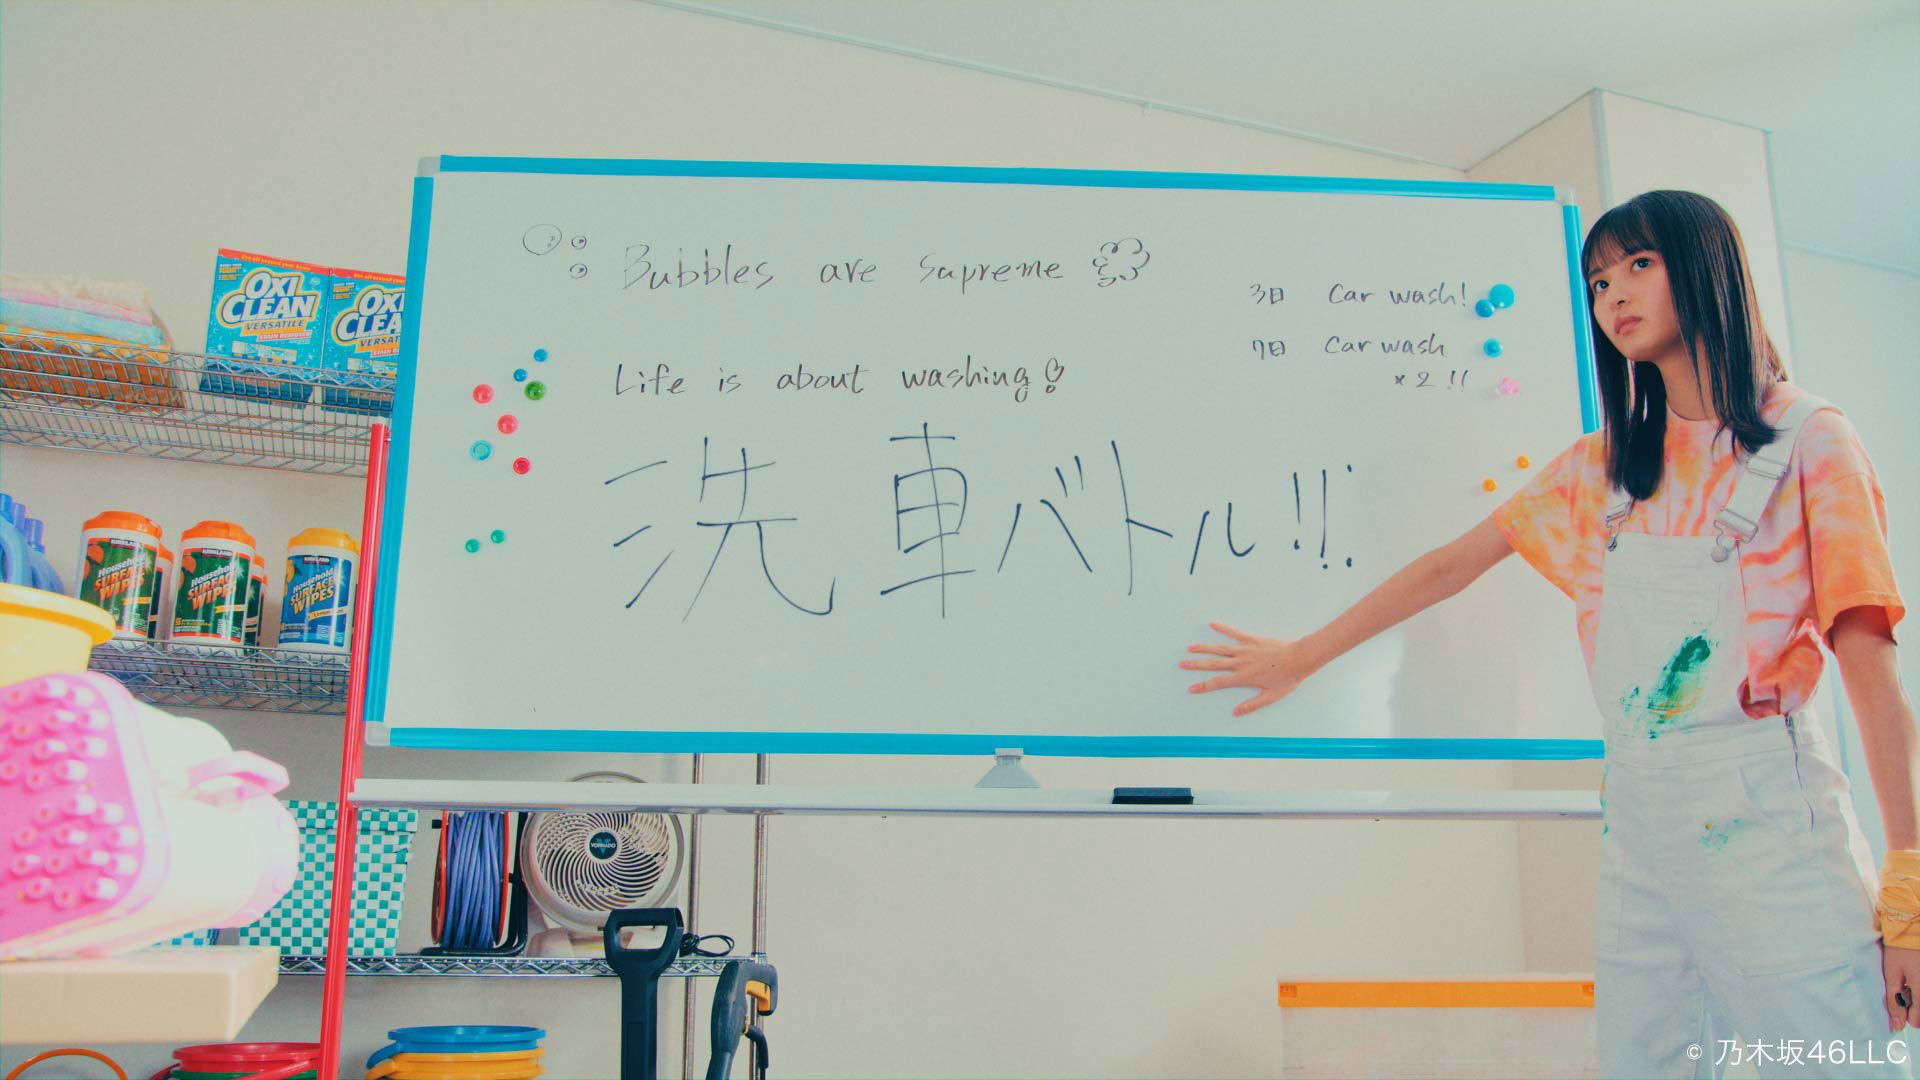 Bubbles are supreme
Life is about washing!
洗車バトル!!
3日 Car wash!
7日 Car wash
×2!!
OXI
CLEAN
VERSATILE
STAIN REMOVER
OXI
CLEA
VERSAT
KIRKLAND
Household
SURFACE
WIPES
KIRKLAND
Household
SURFACE
WIPES
KIRKLAND
Household
SURFACE
WIPES
VORNADO
© 乃木坂46LLC